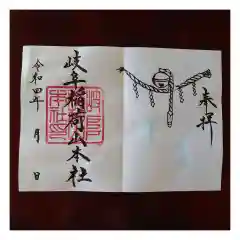 奉拝
岐阜稲荷山本社
令和四年 月 日